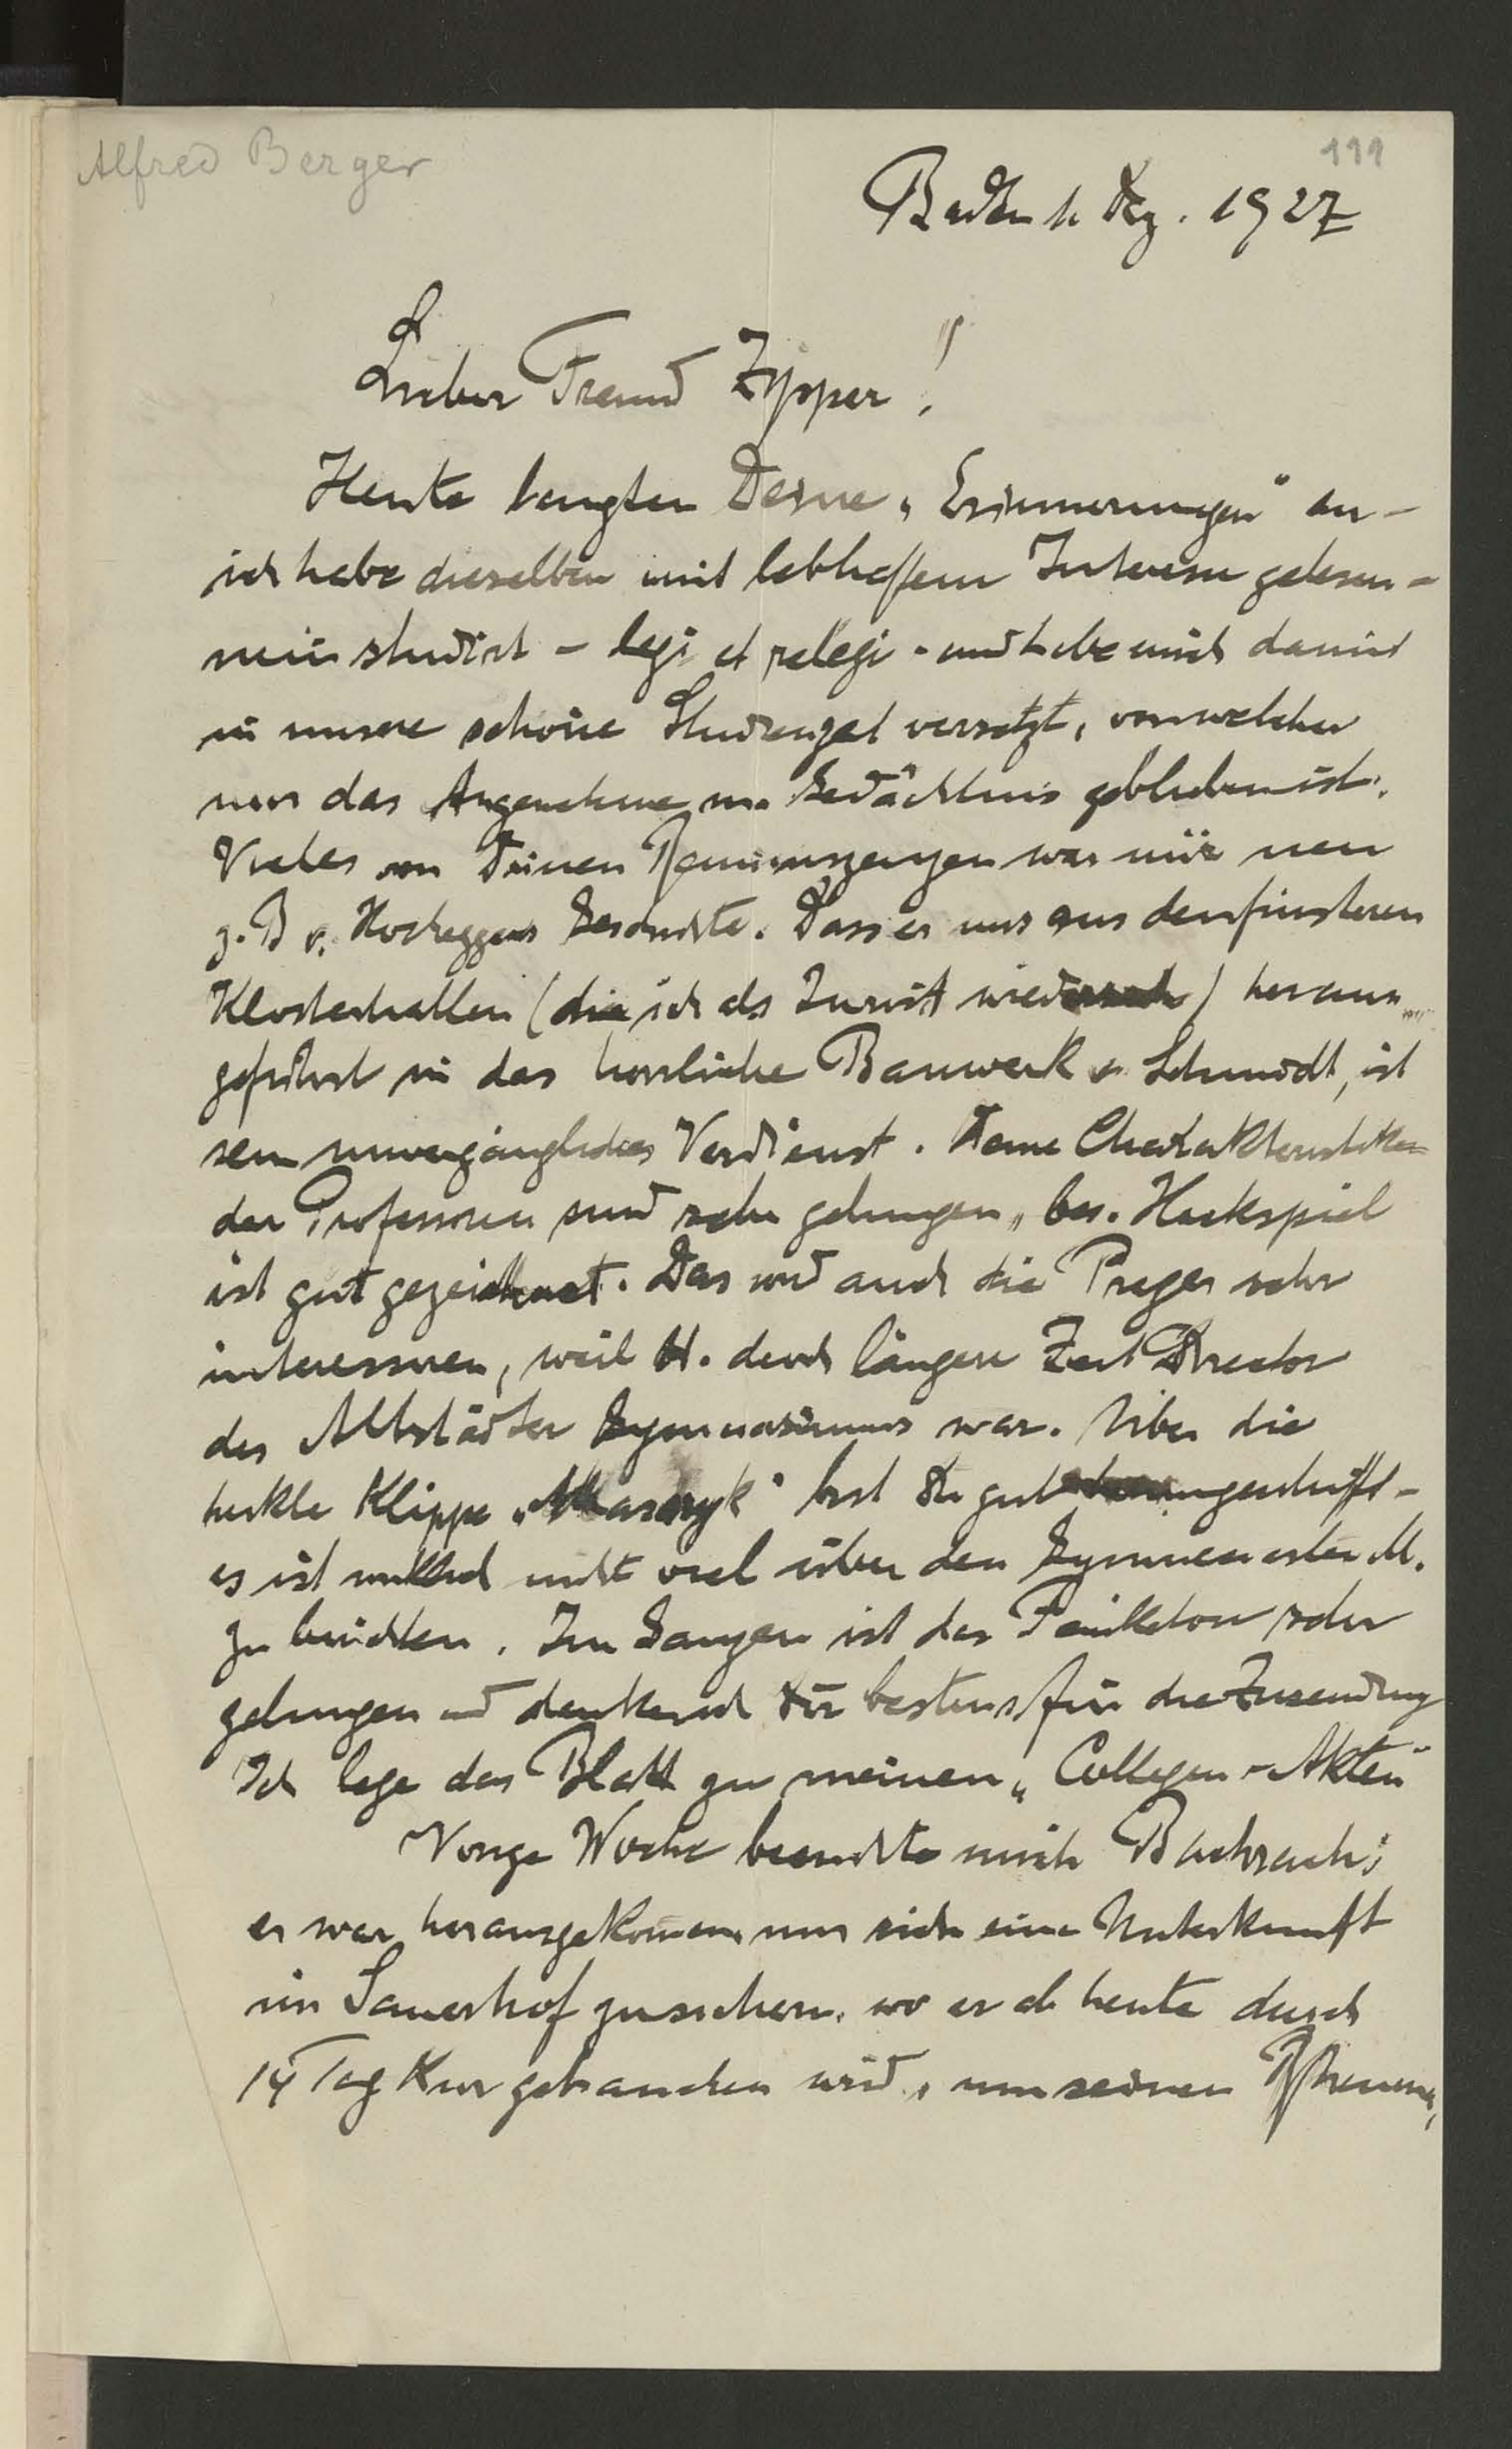 Alfred Berger
111
Baden 1. Dez. 1927
Lieber Freund Zipper!
Heute langten Deine „Erinnerungen" an –
ich habe dieselben mit lebhaftem Interesse gelesen –
nein studirt – legi et relegi – und habe mich damit
in unsere schöne Studienzeit versetzt, von welcher
nur das Angenehme im Gedächtnis geblieben ist.
Vieles von Deinen war mir neu
z. B v. Hocheggers Geschichte. Dass er uns aus den finsteren
Klosterhallen (die ich als Jurist wiedersah) heraus
geführt in das herrliche Bauwerk v. Schmidt, ist
sein unvergängliches Verdienst. Deine Charakteristiken
der Professoren sind sehr gelungen, bes. Hackspiel
ist gut gezeichnet. Das wird auch die Prager sehr
interessiren, weil H. durch längere Zeit Director
des Altstädter Gymnasiums war. Über die
heikle Klippe „Masaryk" bist Du gut –
es ist nicht viel über den Gymnasiasten M.
zu berichten. Im Ganzen ist das Feuilleton sehr
gelungen und danke ich Dir bestens für die Zusendung
Ich lege das Blatt zu meinen „Collegen-Akten"
Vorige Woche besuchte mich Bachrach;
er war herausgekommen um sich eine Unterkunft
im Sauerhof zu sichern, wo er ab heute durch
14 Tag Kur gebrauchen wird, um seinen